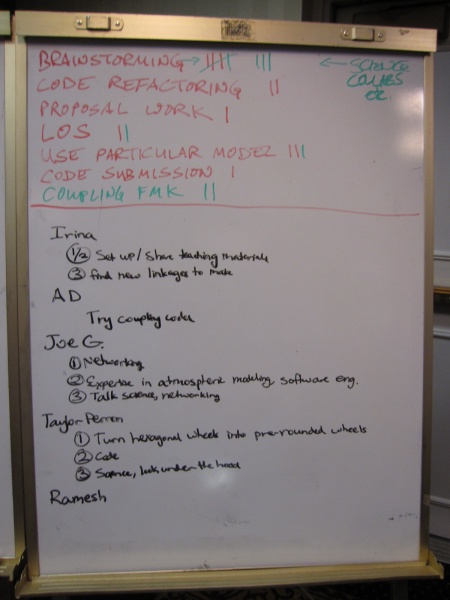 BRAINSTORMING → |||| |||
← SCIENCE
COLLABS
etc.
CODE REFACTORING ||
PROPOSAL WORK |
LOS ||
USE PARTICULAR MODEL |||
CODE SUBMISSION |
COUPLING FMK ||
Irina
1/2 Set up/Share teaching materials
③ find new linkages to make
AD
Try coupling codes
Joe G.
① Networking
② Expertise in atmospheric modeling, software eng.
③ Talk science, networking
Taylor Perron
① Turn hexagonal wheels into pre-rounded wheels
② Code
③ Science, look under the hood
Ramesh